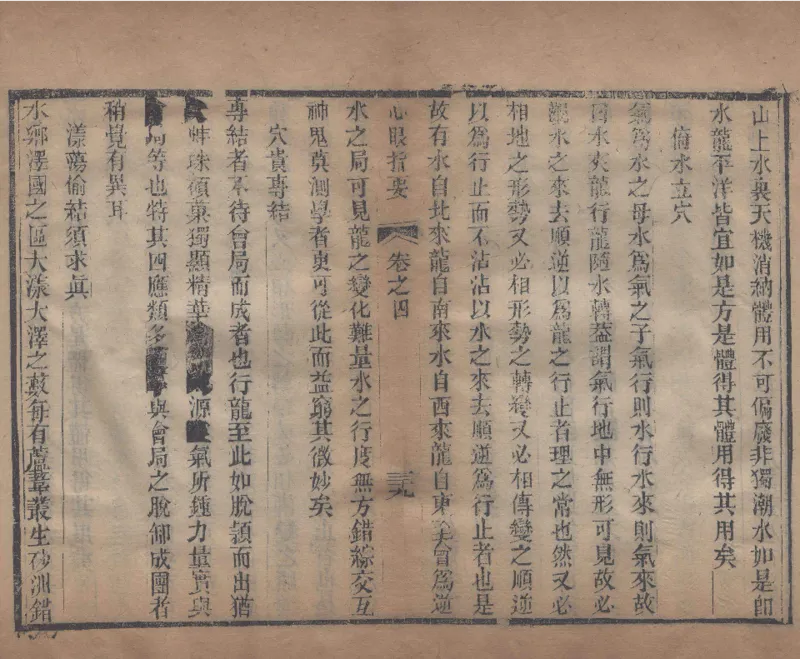 山上水與天機消納體用不可偏廢非獨潮水如是卽
水龍平洋皆宜如是方是體得其體用得其用矣
倚水立穴
氣爲水之母水爲氣之子氣行則水行水來則氣來故
因水來龍行龍隨水轉葢謂氣行地中無形可見故必
觀水之來去順逆以爲龍之行止者理之常也然又必
相地之形勢又必相形勢之轉變又必相傳變之順逆
以爲行止而不沾沾以水之來去順逆爲行止者也是
故有水自北來龍自南來水自西來龍自東夫會爲逆
心眼指要
卷之四
三九
水之局可見龍之變化難量水之行度無方錯綜交互
神鬼莫測學者更可從此而益窮其微妙矣
穴貴專結
專結者不待會局而成者也行龍至此如脫頴而出猶
蚌珠頷菓獨顯精華源氣所鍾力量實與
會局等也特其四應類多與會局之脫卸成團者
稍覺有異耳
漾蕩偷結須求眞
水鄉澤國之區大漾大澤之藪每有蘆葦叢生砂洲錯